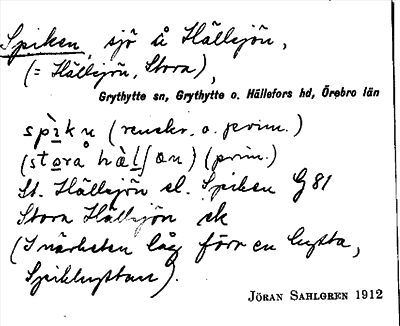 Spiken, sjö å Hällsjön,
(= Hällsjön, Stora),
Grythytte sn, Grythytte o. Hällefors hd, Örebro län
spìkn (renskr. o. prim.)
(stora hàlʃøn) (prim.)
St. Hällsjön el. Spiken G81
Stora Hällsjön ek
(I närheten låg förr en hytta,
Spikhyttan).
JÖRAN SAHLGREN 1912